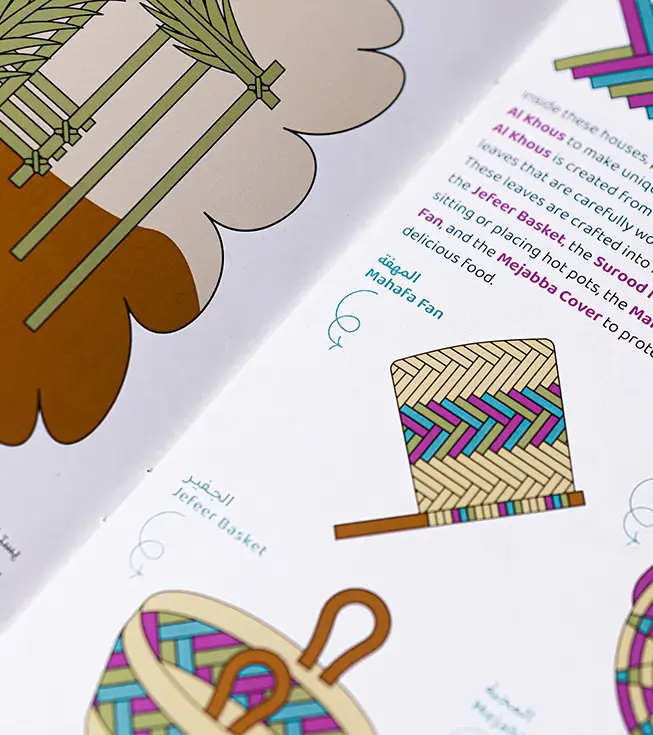 Inside these houses,
Al Khous to make uniq
Al Khous is created from
leaves that are carefully wo
These leaves are crafted into
the Jefeer Basket, the Surood
sitting or placing hot pots, the Ma
Fan, and the Mejabba Cover to prote
delicious food.
المهفة
Mahafa Fan
الجفير
Jefeer Basket
المجبة
Mejabb